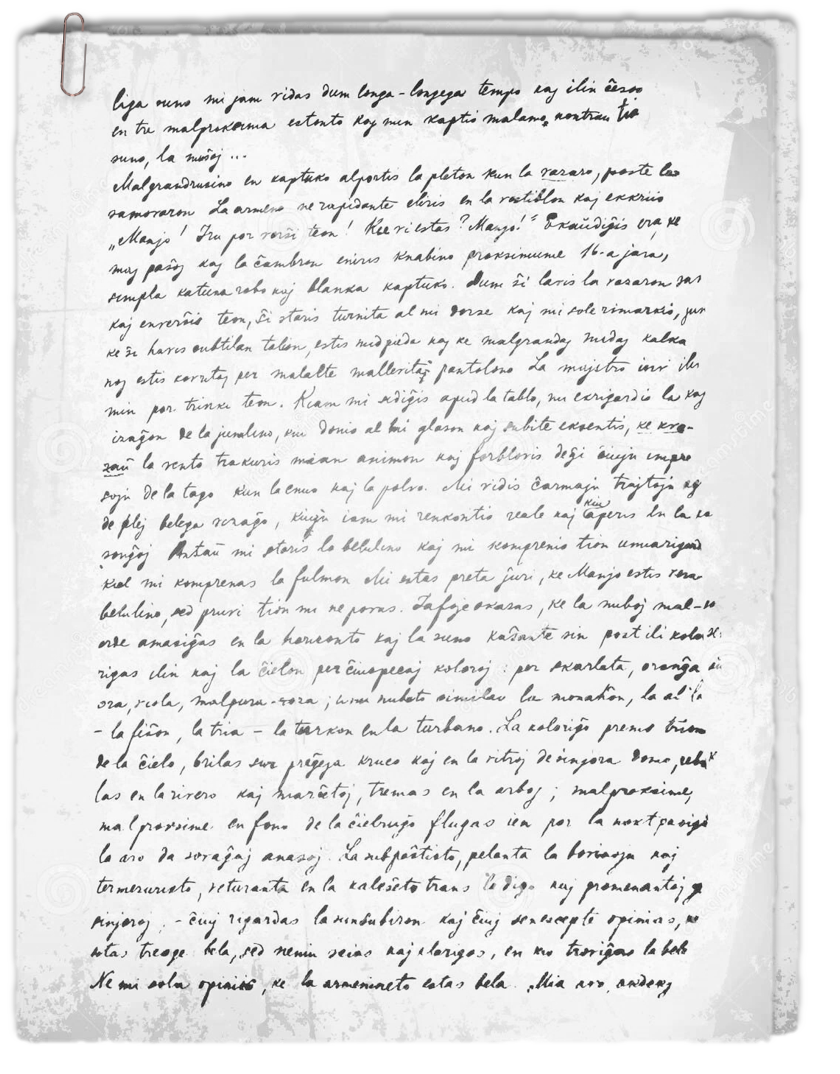 liga suno mi jam vidas dum longa-longega tempo kaj ilin ĉesos
en tre malproksima estonto kaj min kaptis malamo kontraŭ tio
suno, la muŝoj ...
Malgrandrusino en kaptuko alportis la pleton kun la vazaro, poste la
samovaron La armeno ne rapidante eliris en la vestiblon kaj ekkriis
"Manjo! Iru por verŝi teon! Kie vi estas? Manjo!" Ekaŭdiĝis ke
paŝoj kaj la ĉambron eniris knabino proksimume 16-a jara,
simpla katuna robo kaj blanka kaptuko. Dum ŝi lavis la vazaron
kaj enverŝis teon, ŝi staris turnita al mi dorse kaj mi sole rimarkis,
ke ŝi havis subtilan talion, estis nudpieda kaj ke malgrandaj nudaj kalka
noj estis kovritaj per malalte mallevitaj pantalono La mastro
min por trinki teon. Kiam mi sidiĝis apud la tablo, mi ekrigardis la
vizaĝon de la junulino, kiu donis al mi glason kaj subite eksentis, ke kva-
zaŭ la vento trakuris mian animon kaj forblovis de ĝi ĉiujn impre
sojn de la tago kun la enuo kaj la polvo. Mi vidis ĉarmajn trajtojn
de plej belega vizaĝo, kiujn iam mi renkontis reale kaj kiu aperis en la
sonĝoj Antaŭ mi staris la belulino kaj mi komprenis tion
kiel mi komprenas la fulmon Mi estas preta ĵuri, ke Manjo estis vera
belulino, sed pruvi tion mi ne povas. Iafoje okazas, ke la nuboj mal-
orde amasiĝas en la horizonto kaj la suno kaŝante sin post ili kolo
rigas ilin kaj la ĉielon per ĉiuspecaj koloroj: per skarlata, oranĝa
ora, viola, malpura-roza; unu nubeto similas la monaĥon, la alia
- la fiŝon, la tria - la turkon en la turbano. La koloriĝo
de la ĉielo, brilas sur preĝeja kruco kaj en la vitroj de sinjora domo,
las en la rivero kaj marĉetoj, tremas en la arboj; malproksime,
malproksime en fono de la ĉielruĝo flugas ien por la noktpasigo
la aro da sovaĝaj anasoj. La subpaŝtisto, pelanta la bovinojn kaj
termezuristo, veturanta en la kaleŝeto trans la digo kaj promenantaj
sinjoroj, - ĉiuj rigardas la sunsubiron kaj ĉiuj senescepte opinias, ke
estas treege bela, sed neniu scias kaj klarigos, en kio troviĝas la belo
Ne mi sola opiniis, ke la armenineto estas bela. Mia avo,